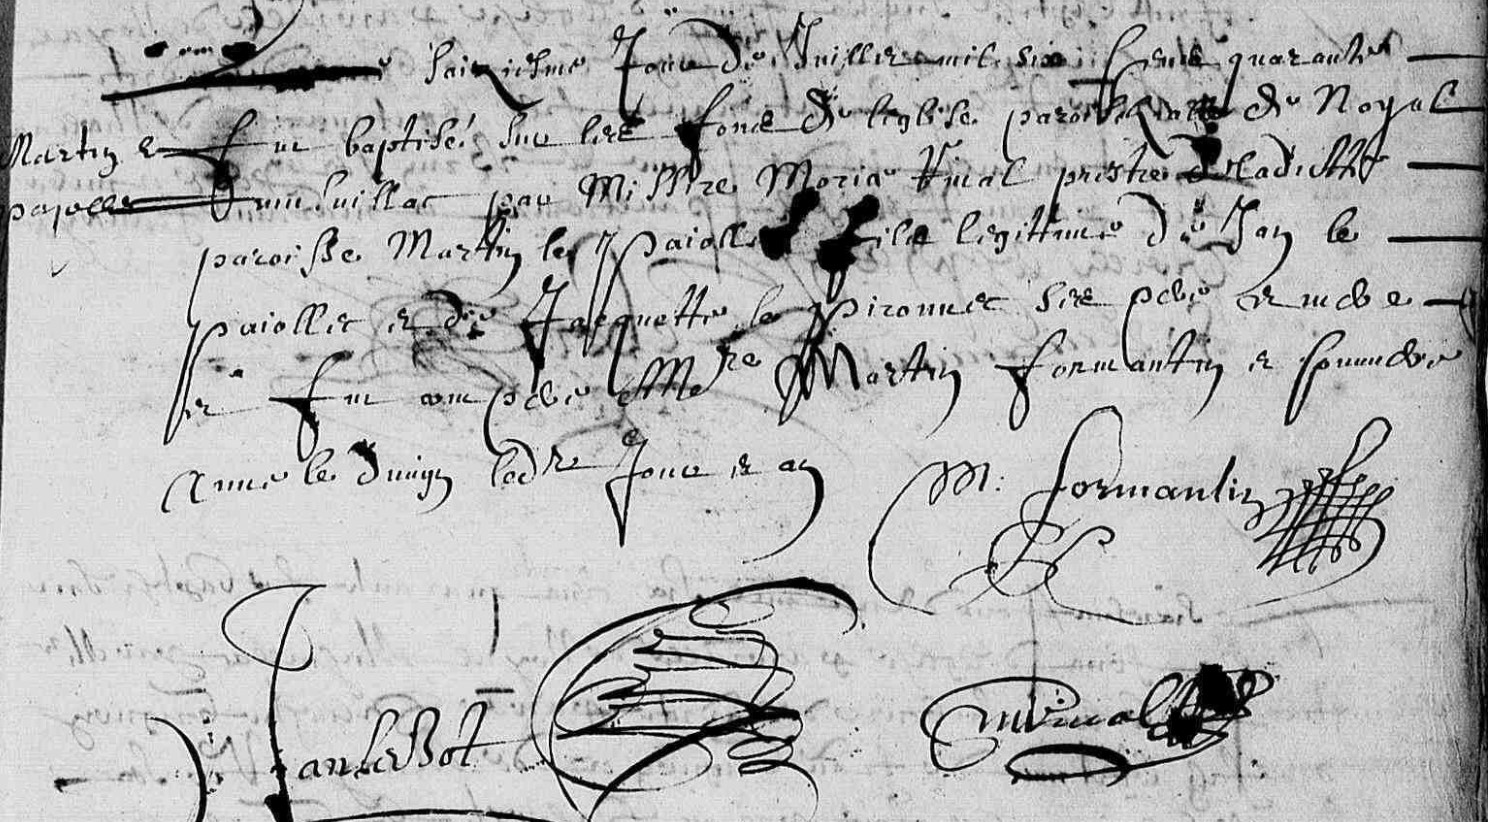 saiziesme Jour de Juillet mil six cents quarante
Martin le fut baptisé sur les fons de leglise paroissialle de Noyal
paiollec muisuillac par Missire Morice Vinal prestre de ladicte
paroisse Martin le paiollec fils legittime de Jan le
paiollec et de Jacquette le pironnec ses pere et mere
et fut compere Mre Martin formantin et commere
Anne le duign ledt Jour et an
M: formantin
Jan le Bot